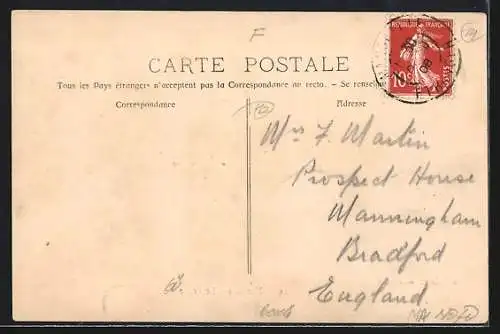 F
CARTE POSTALE
Tous les Pays étrangers n'acceptent pas la Correspondance au recto. - Se renseigner
Correspondance
Adresse
10
Mrs F. Martin
Prospect House
Manningham
Bradford
England.